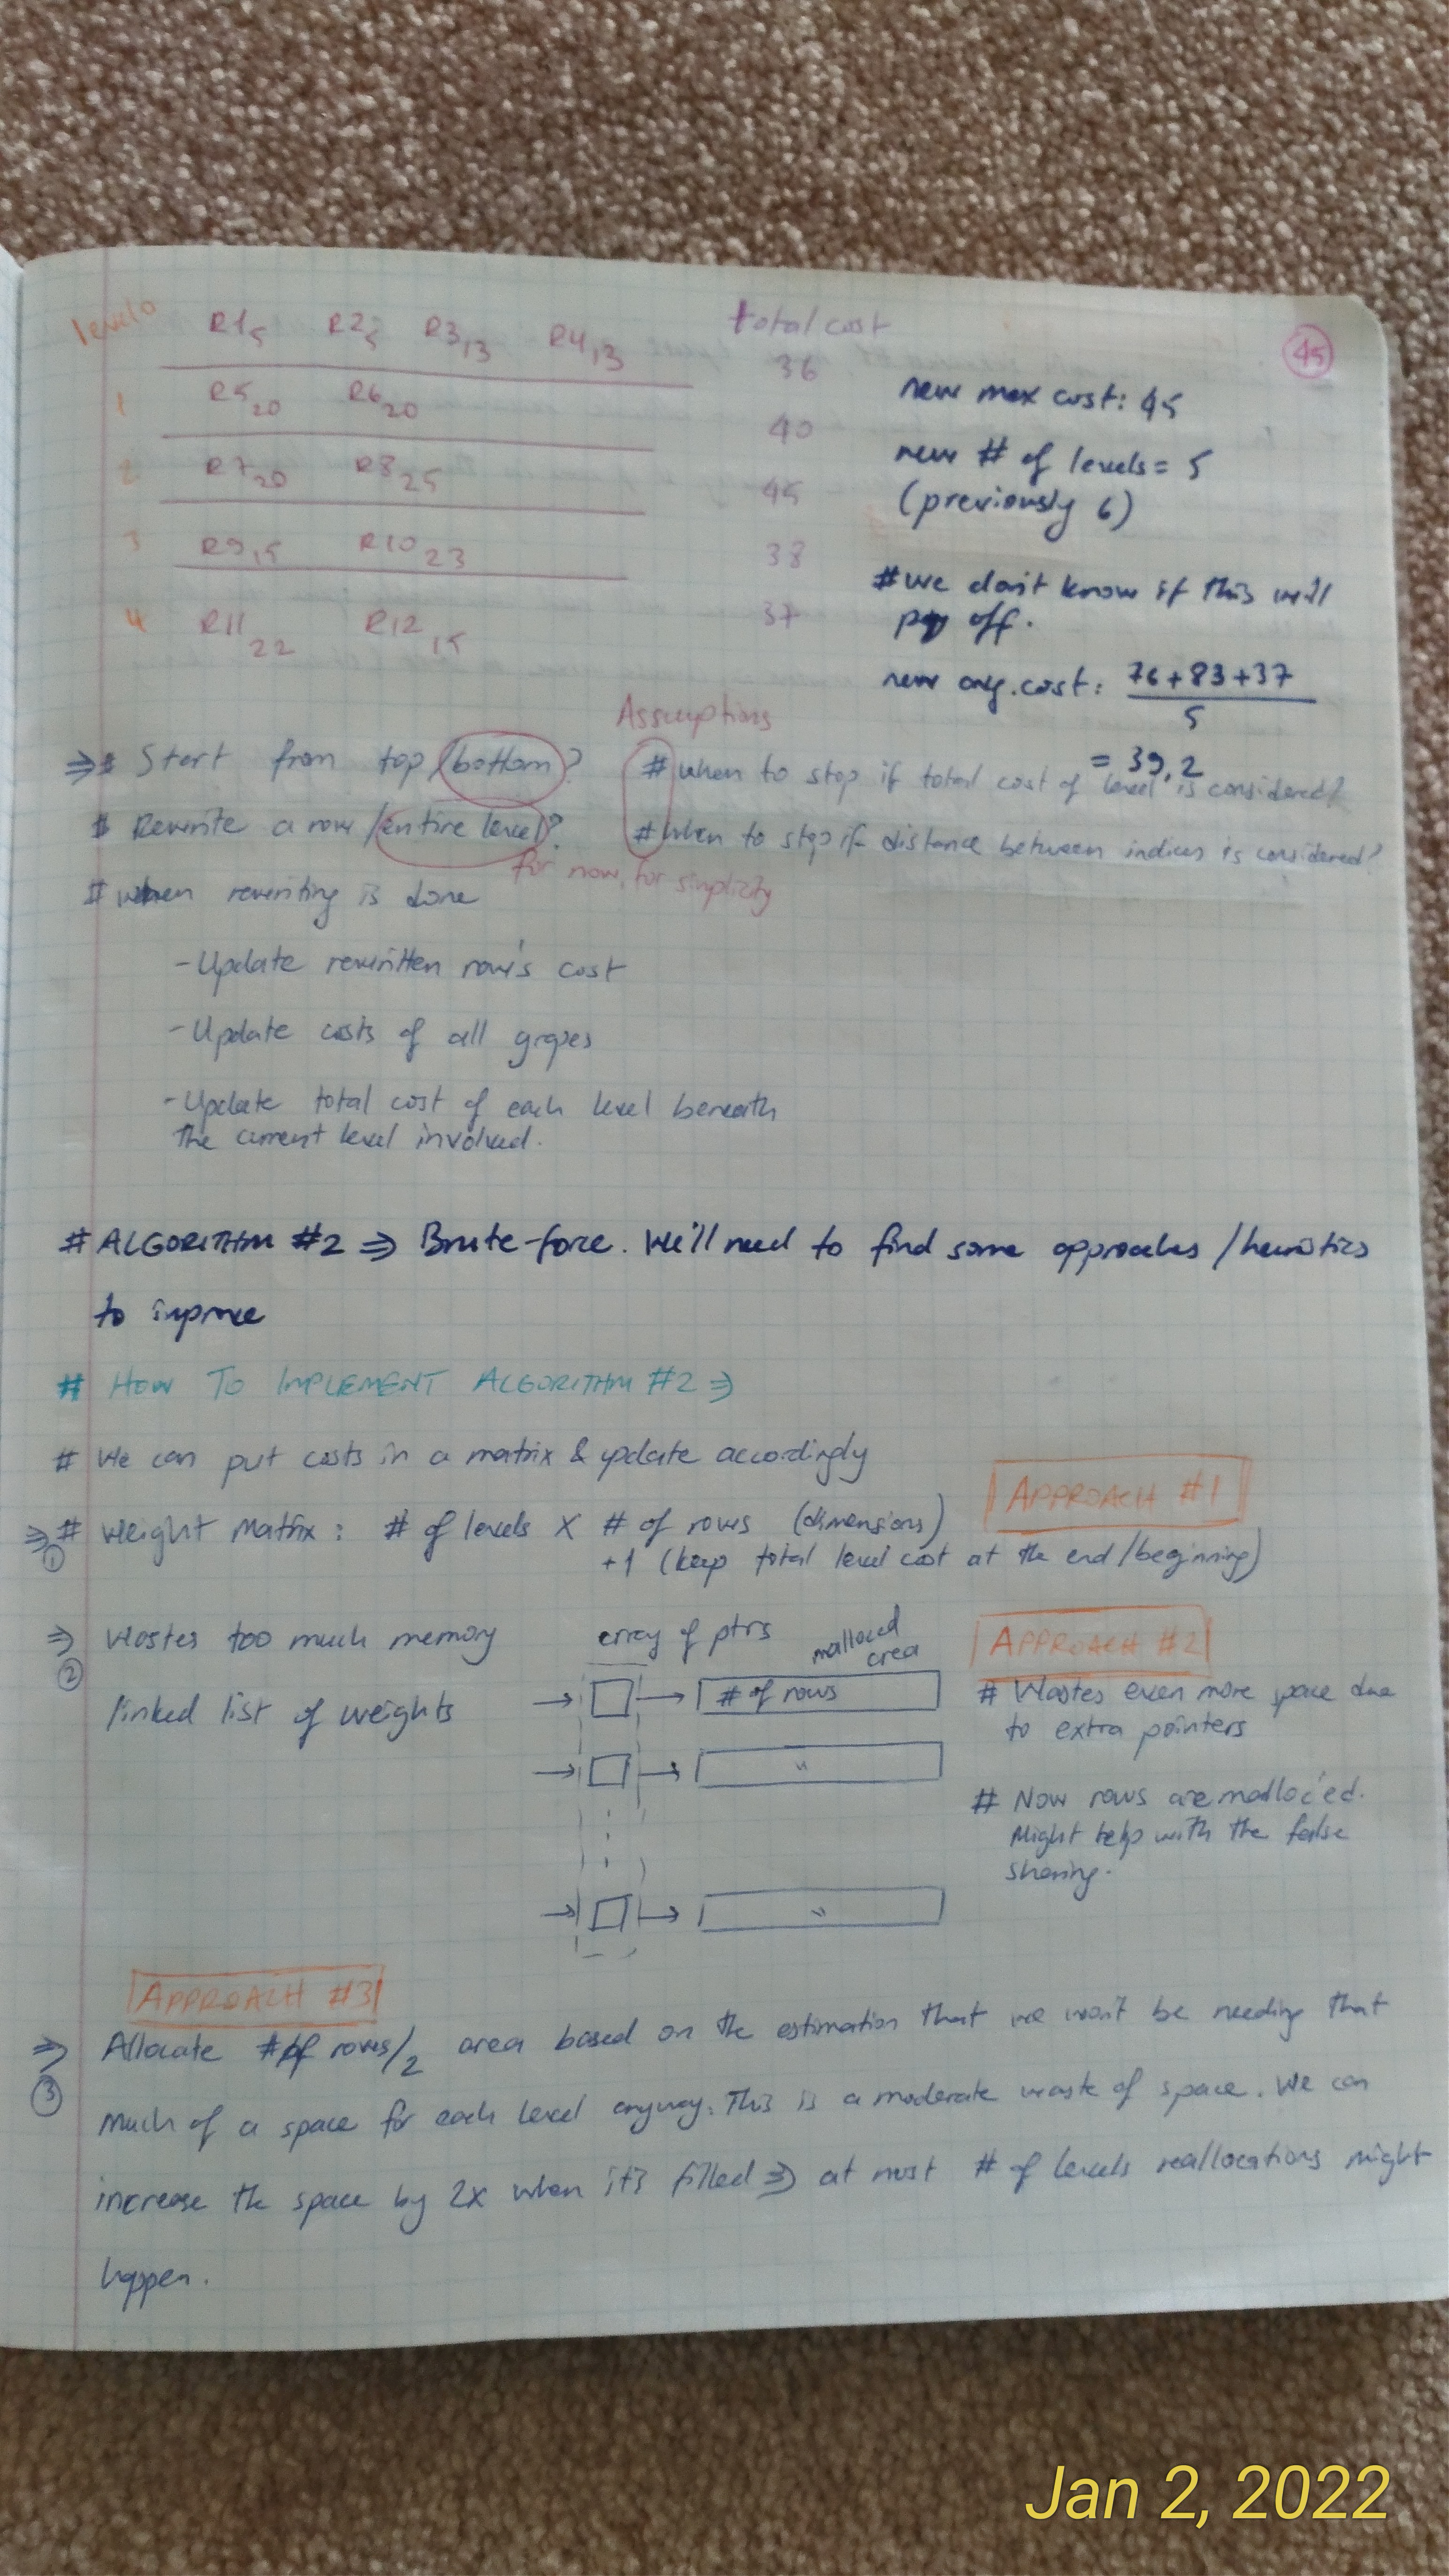 level 0 R1 5 R2 5 R3 13 R4 13 total cost
36
45
1 R5 20 R6 20
40
2 R7 20 R8 25
45
3 R9 15 R10 23
38
4 R11 22 R12 15
37
new max cost: 45
new # of levels = 5
(previously 6)
# we don't know if this will
pay off.
new avg. cost: 76+83+37
5
= 39,2
Assumptions
⇒ # Start from top/bottom?
# Rewrite a row/entire level?
for now, for simplicity
# when to stop if total cost of level is considered?
# when to stop if distance between indices is considered?
# when rewriting is done
- Update rewritten row's cost
- Update costs of all
- Update total cost of each level beneath
the current level involved.
# ALGORITHM #2 ⇒ Brute-force. We'll need to find some approaches/heuristics
to improve
# HOW TO IMPLEMENT ALGORITHM #2 ⇒
# We can put costs in a matrix & update accordingly
APPROACH #1
⇒ # Weight Matrix: # of levels X # of rows (dimensions)
①
+1 (keep total level cost at the end/beginning)
⇒ Wastes too much memory
②
linked list of weights
array of ptrs
malloced
area
# of rows
"
"
APPROACH #2
# Wastes even more space due
to extra pointers
# Now rows are malloc'ed.
Might help with the false
sharing.
APPROACH #3
⇒ Allocate # of rows/2 area based on the estimation that we won't be needing that
③
much of a space for each level anyway. This is a moderate waste of space. We can
increase the space by 2x when it's filled ⇒ at most # of levels reallocations might
happen.
Jan 2, 2022